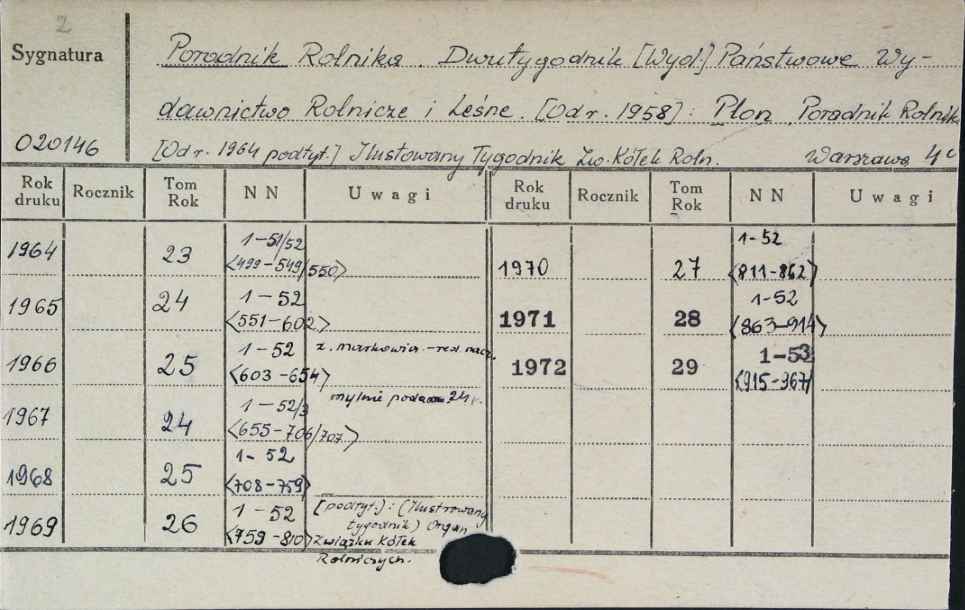 2
Sygnatura
Poradnik Rolnika. Dwutygodnik [Wyd.] Państwowe Wy-
dawnictwo Rolnicze i Leśne. [Od r. 1958]: Plon. Poradnik Rolnika
020146
[Od r. 1964 podtyt.] Ilustowany Tygodnik Zw. Kółek Roln. Warszawa 4°
Rok druku Rocznik Tom Rok NN Uwagi Rok druku Rocznik Tom Rok NN Uwagi
1964 23 1-51/52 <499-549/550>
1965 24 1-52 <551-602>
1966 25 1-52 <603-654> z. - red. nacz.
1967 24 1-52/3 <655-706/707> mylnie podano 24 r.
1968 25 1-52 <708-759>
1969 26 1-52 <759-810> [podtyt.]: (Ilustrowany
tygodnik) Organ
Związku Kółek
Rolniczych.
1970 27 1-52 <811-862>
1971 28 1-52 <863-914>
1972 29 1-53 <915-967>